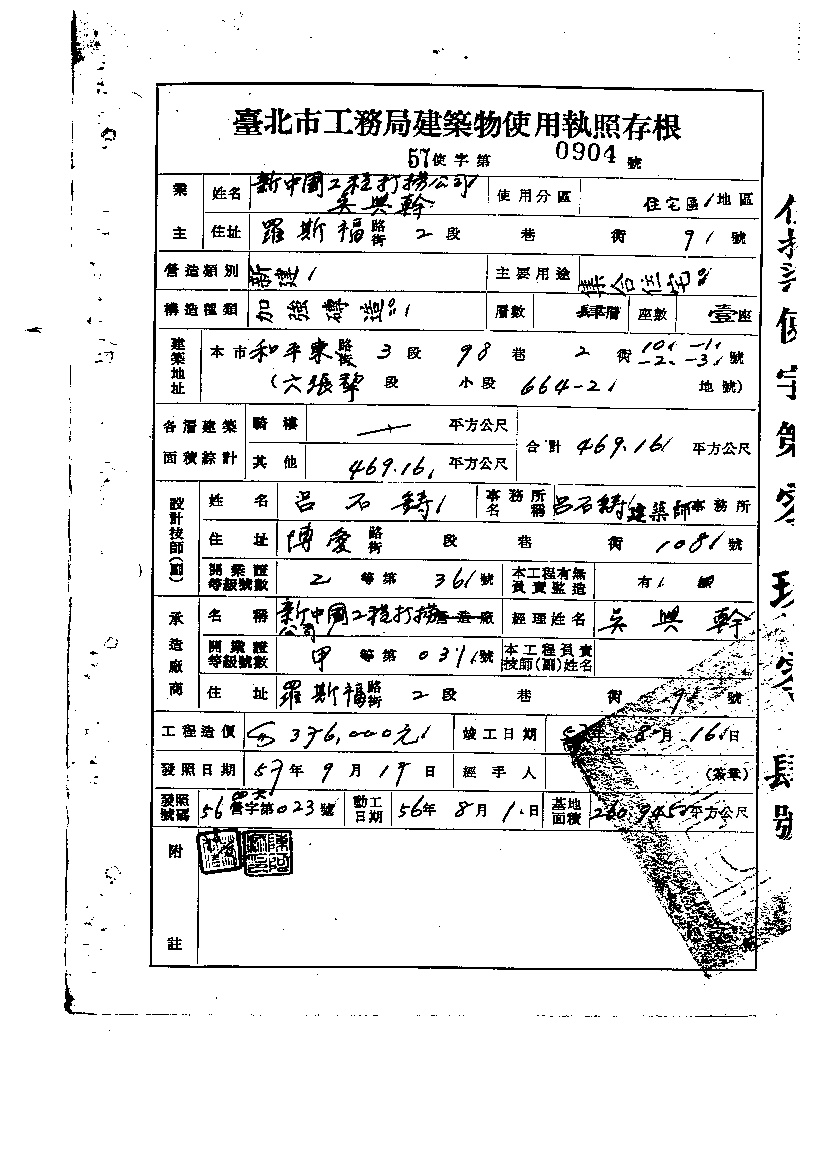 臺北市工務局建築物使用執照存根
57使字第 0904 號
業主 姓名 新中國工程打撈公司 吳興幹 使用分區 住宅區 地區
住址 羅斯福路街 2段 巷 街 91號
營造類別 新建 主要用途 集合住宅
構造種類 加強磚造 層數 肆層 座數 壹座
建築地址 本市和平東路街 3段 98巷 2街 10.-1. -2.-3號
(六張犁段 小段 664-2 地號)
各層建築面積綜計 騎樓 平方公尺 合計 469.16 平方公尺
其他 469.16 平方公尺
設計技師(副) 姓名 呂石鑄 事務所名稱 呂石鑄建築師事務所
住址 博愛路街 段 巷 街 108號
開業證等級號數 2等第 36號 本工程有無負責監造 有
承造廠商 名稱 新中國工程打撈公司營造廠 經理姓名 吳興幹
開業證等級號數 甲等第 031號 本工程負責技師(副)姓名
住址 羅斯福路街 2段 巷 街 91號
工程造價 376,000元 竣工日期 57年 8月 16日
發照日期 57年 9月 19日 經手人 (簽章)
發照號碼 56營字第023號 動工日期 56年 8月 1日 基地面積 平方公尺
附註
使字第零玖零肆號